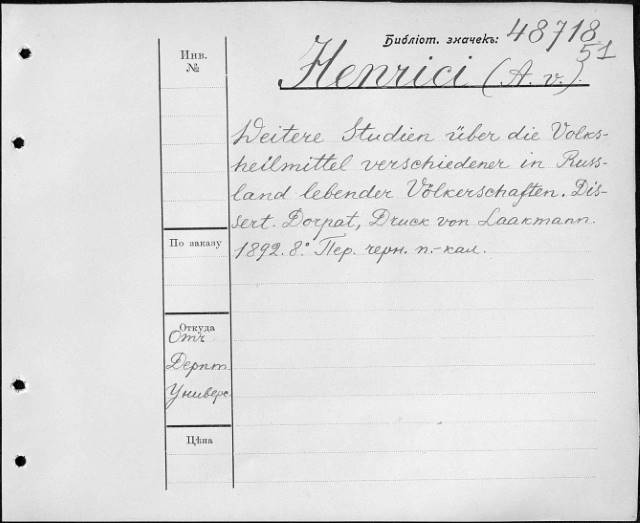 Библіот. значекъ: 48718
51
Инв.
№
Henrici (A. v.).
Weitere Studien über die Volks-
heilmittel verschiedener in Russ-
land lebender Völkerschaften. Dis-
sert. Dorpat, Druck von Laakmann.
1892. 8.° Пер. черн. п.-кал.
По заказу
Откуда
Отъ
Дерпт.
Универс.
Цѣна